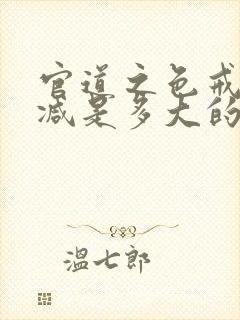 官道之色戒
减是多大的
温七郎